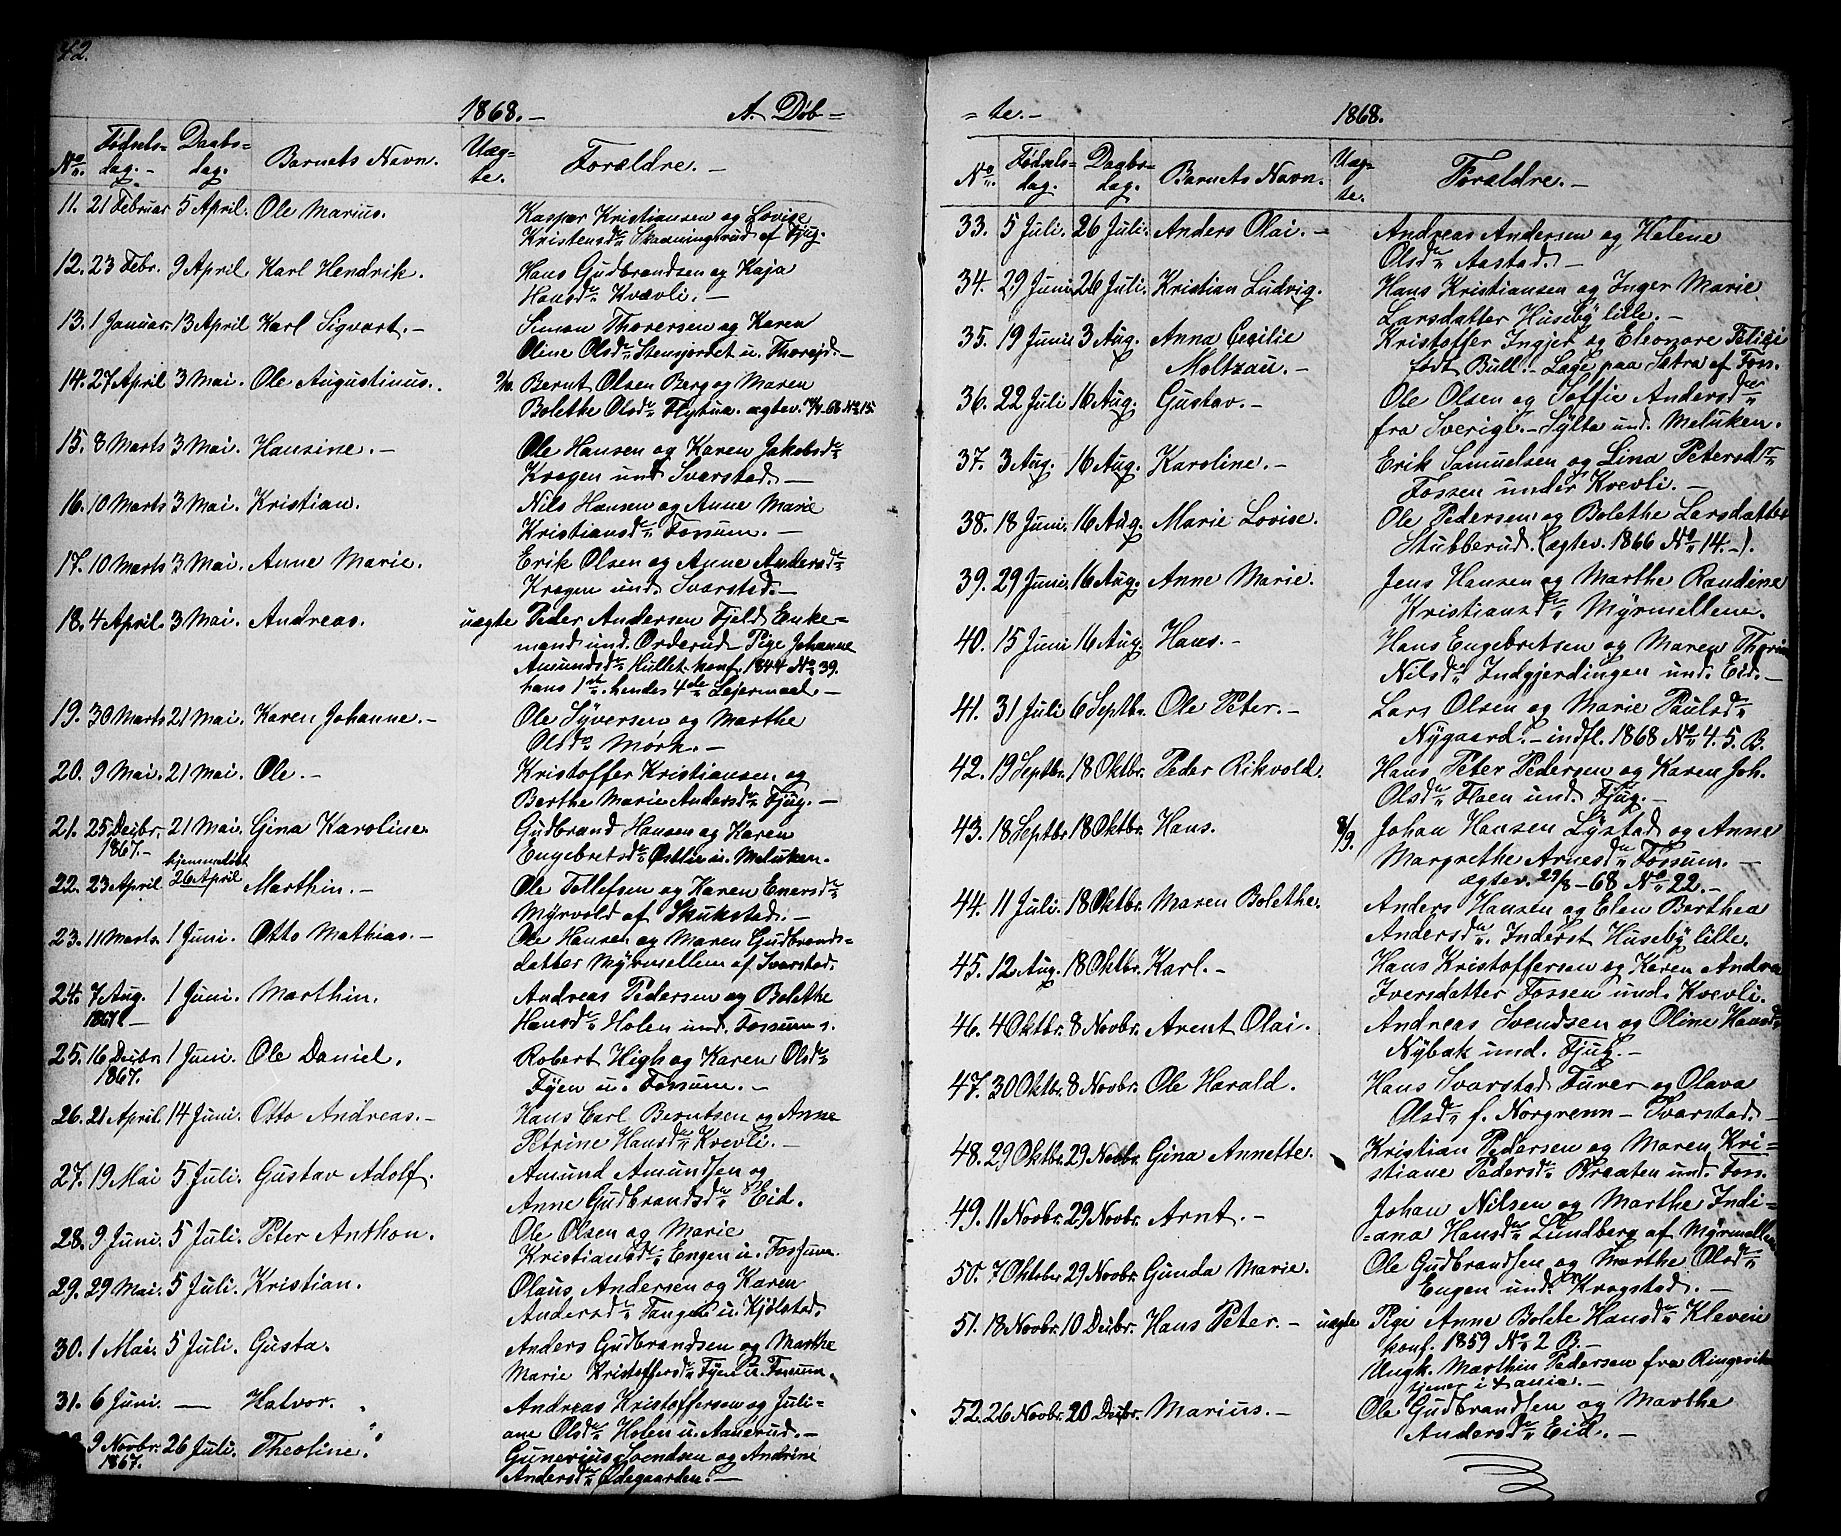 42.
1868. - A. Døb-
No. Fødsels-dag. - Daabs-dag. Barnets Navn. Uæg-te. Forældre. -
11. 21 Februar 5 April. Ole Marius. Kasper Kristiansen og Lovise
Kristensdr Skavningsrud af Fjug.
12. 23 Febr. 9 April. Karl Hendrik. Hans Gudbrandsen og Kaja
Hansdr Kvævli. -
13. 1 Januar. 13 April Karl Sigvart. - Simon Thoresen og Karen
Oline Olsdr Stensjordet u. Thorejd. -
14. 27 April 3 Mai. Ole Augustinus. Bernt Olsen Berg og Maren
Bolette Olsdr Flytua. ægtev. 68 No 15
15. 8 Marts 3 Mai. Hansine. - Ole Hansen og Karen Jakobsdr
Kragen und Svarstad. -
16. 10 Marts 3 Mai. Kristian. Nils Hansen og Anne Marie
Kristiansdr Fossum. -
17. 10 Marts 3 Mai. Anne Marie. Erik Olsen og Anne Andersdr
Kragen und. Svarstad. -
18. 4 April. 3 Mai. Andreas. uægte Peder Andersen Fjeld Enke-
mand und. Orderud - Pige Johanne
Amundsdr Hullet konf. 1844 No 39.
hans 1ste hendes 4de Lejermaal -
19. 30 Marts 21 Mai. Karen Johanne. - Ole Syversen og Marthe
Olsdr Mørk. -
20. 9 Mai. 21 Mai. Ole. - Kristoffer Kristiansen og
Berthe Marie Andersdr Fjug. -
21. 25 Decbr. 1867. - 21 Mai. Gina Karoline. Gudbrand Hansen og Karen
Engebretsdr Østlie u. Meluken.
22. 23 April hjemmedøbt 26 April Marthin. - Ole Tollefsen og Karen Enersdr
Myrvold af Skukstad. -
23. 11 Marts. 1 Juni. Otto Mathias. - Ole Hansen og Maren Gudbrands-
datter Myrmellem af Svarstad.
24. 7 Aug. 1867 - 1 Juni. Marthin. Andreas Pedersen og Bolethe
Hansdr Holen und. Fossum.
25. 16 Decbr. 1867. 1 Juni. Ole Daniel. Robert High og Karen Olsdr
Fyen u. Fossum. -
26. 21 April. 14 Juni. Otto Andreas. - Hans Carl Berntsen og Anne
Petrine Hansdr Krevli. -
27. 19 Mai 5 Juli. Gustav Adolf. Amund Amundsen og
Anne Gudbrandsdr Eid.
28. 9 Juni. 5 Juli. Peter Anthon. Ole Olsen og Marie
Kristiansdr Engen u. Fossum.
29. 29 Mai. 5 Juli. Kristian. Olaus Andersen og Karen
Andersdr Tangen u. Kjølstad.
30. 1 Mai. 5 Juli. Gusta. Anders Gudbrandsen og Marthe
Marie Kristoffersdr Fyen u. Fossum.
31. 6 Juni. - Halvor. Andreas Kristoffersen og Juli-
ane Olsdr Holen u. Aanerud. -
9 Novbr. 1867. 26 Juli. Theoline. Gunerius Svendsen og Andrine
Andersdr Ødegaarden. -
= te. - 1868.
No. Fødsels-dag. Daabs-dag. Barnets Navn. Uæg-te. Forældre. -
33. 5 Juli. 26 Juli. Anders Olai. - Andreas Andersen og Helene
Olsdr Aastad. -
34. 29 Juni 26 Juli. Kristian Ludvig. Hans Kristiansen og Inger Marie
Larsdatter Huseby lille. -
35. 19 Juni 3 Aug. Anna Cecilie Moltzau. - Kristoffer Ingjer og Eleonore
født Bull. - Læge paa Sætra af Foss.
36. 22 Juli 16 Aug. Gustav. - Ole Olsen og Soffie Andersdr
fra Sverige. - Sylta und. Meluken.
37. 3 Aug. 16 Aug. Karoline. - Erik Samuelsen og Lina Petersdr
Fossen under Krevli. -
38. 18 Juni. 16 Aug. Marie Lovise. Ole Pedersen og Bolethe Larsdatter
Stubberud. (ægtev. 1866 No 14. -).
39. 29 Juni 16 Aug. Anne Marie. Jens Hansen og Marthe Randine
Kristiansdr Myrmellene.
40. 15 Juni 16 Aug. Hans. - Hans Engebretsen og Maren
Nilsdr Indgjerdingen und. Eid. -
41. 31 Juli 6 Septbr. Ole Peter. - Lars Olsen og Marie Paulsdr
Nygaard. - indfl. 1868 No 4. 5. B.
42. 19 Septbr. 18 Oktbr. Peder Rikvold. Hans Peter Pedersen og Karen Joh.
Olsdr Floen und. Fjug. -
43. 18 Septbr. 18 Oktbr. Hans. 8/9. Johan Hansen Lystad og Anne
Margrethe Arnesdr Fossum. -
ægtev. 29/8 - 68 No 22. -
44. 11 Juli. 18 Oktbr. Maren Bolethe. Anders Hansen og Elen Berthea
Andersdr Inderst Huseby lille.
45. 12 Aug. 18 Oktbr. Karl. - Hans Kristoffersen og Karen Andrea
Iversdatter Fossen und. Kvevli.
46. 4 Oktbr. 8 Novbr. Arent Olai. Andreas Svendsen og Oline Hansdr
Nybak und. Fjug. -
47. 30 Oktbr. 8 Novbr. Ole Harald. Hans Svarstad Furer og Olava
Olsdr f. Norgrenn - Svarstad. -
48. 29 Oktbr. 29 Novbr. Gina Annette. Kristian Pedersen og Maren Kri-
stiane Pedersdr Braaten und. Foss.
49. 11 Novbr. 29 Novbr. Arnt. - Johan Nilsen og Marthe Indi-
=ana Hansdr Lundberg af Myrmellem
50. 7 Oktober 29 Novbr. Gunda Marie. Ole Gudbrandsen og Marthe Olsdr
Engen und. Kragstad. -
51. 18 Novbr. 10 Decbr. Hans Peter. - uægte Pige Anne Bolete Hansdr Kleven
konf. 1859 No 2 B. -
Ungk. Marthin Pedersen fra
tjener i -
52. 26 Novbr. 20 Decbr. Marius. - Ole Gudbrandsen og Marthe
Andersdr Eid. -